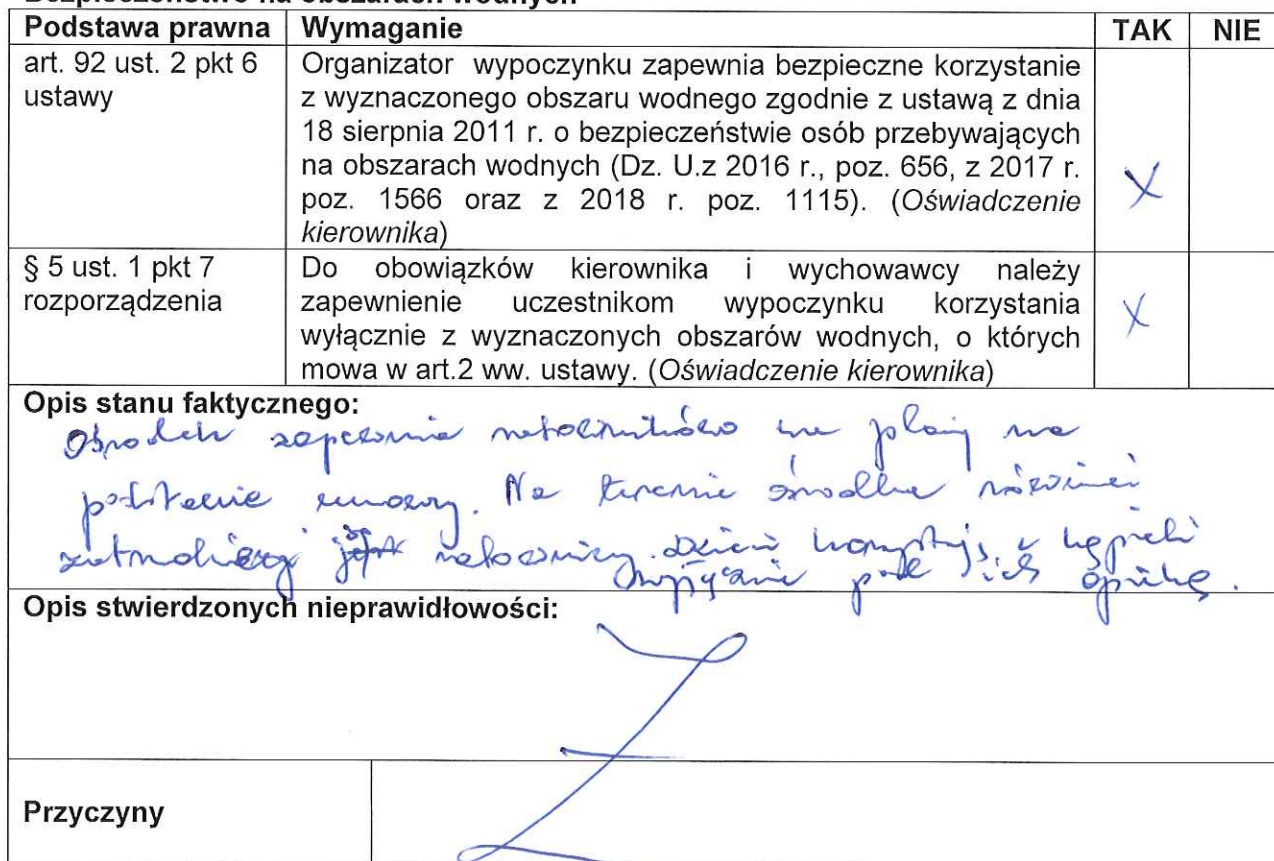 Bezpieczeństwo na obszarach wodnych
Podstawa prawna Wymaganie TAK NIE
art. 92 ust. 2 pkt 6
ustawy
Organizator wypoczynku zapewnia bezpieczne korzystanie
z wyznaczonego obszaru wodnego zgodnie z ustawą z dnia
18 sierpnia 2011 r. o bezpieczeństwie osób przebywających
na obszarach wodnych (Dz. U.z 2016 r., poz. 656, z 2017 r.
poz. 1566 oraz z 2018 r. poz. 1115). (Oświadczenie
kierownika)
X
§ 5 ust. 1 pkt 7
rozporządzenia
Do obowiązków kierownika i wychowawcy należy
zapewnienie uczestnikom wypoczynku korzystania
wyłącznie z wyznaczonych obszarów wodnych, o których
mowa w art.2 ww. ustawy. (Oświadczenie kierownika)
X
Opis stanu faktycznego:
Ośrodek zapewnia ratowników na plaży na
podstawie umowy. Na terenie ośrodka również
zatrudnieni są ratownicy. Dzieci korzystają z kąpieli
wyłącznie pod ich opieką.
Opis stwierdzonych nieprawidłowości:
Przyczyny